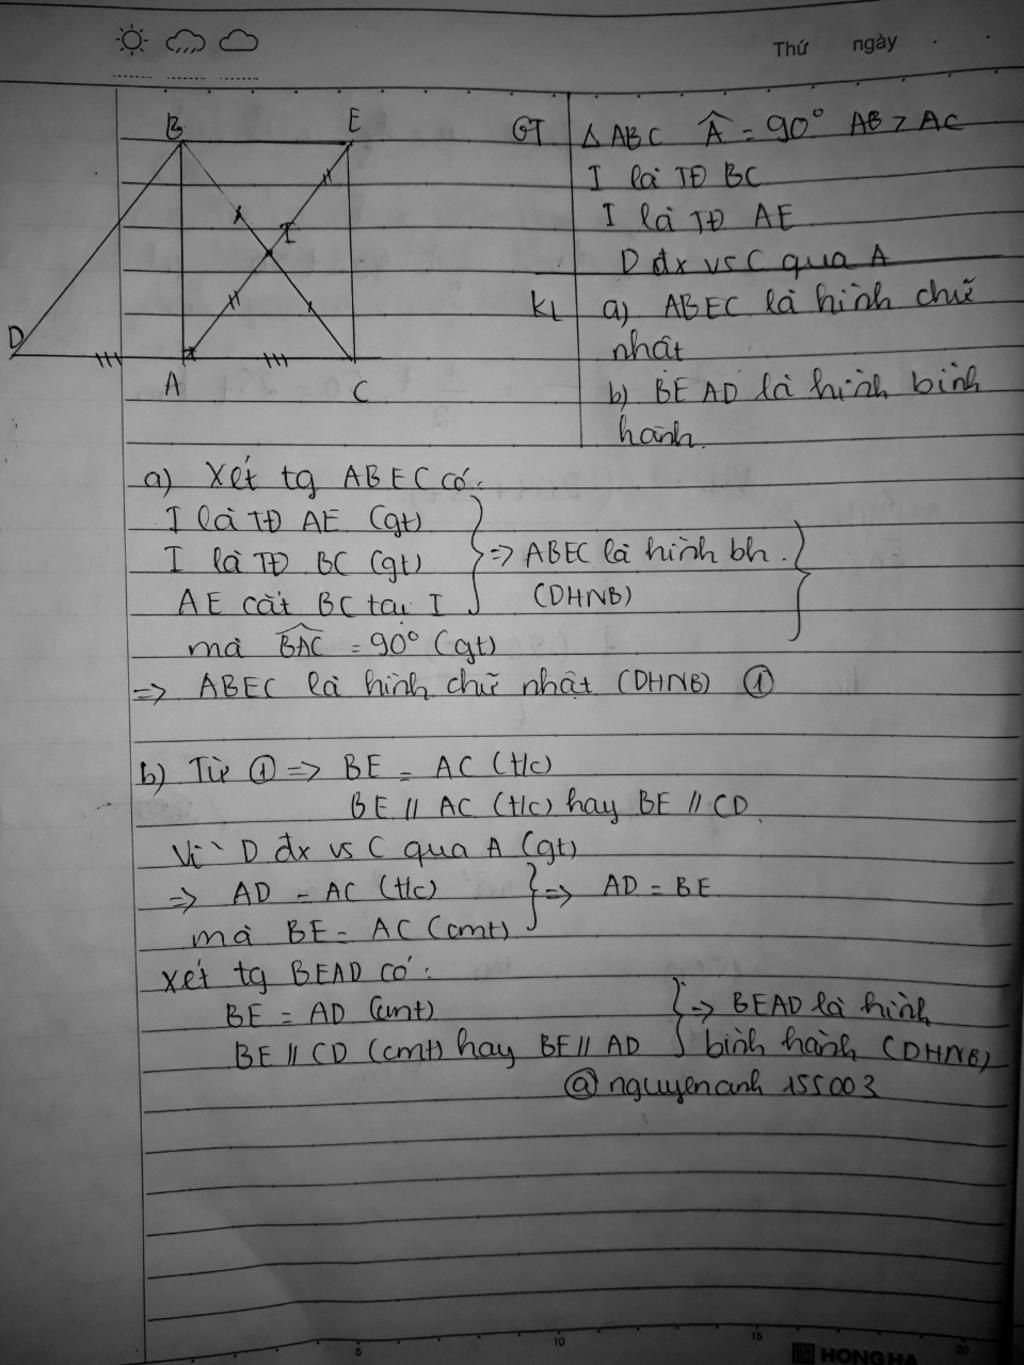 Thứ ngày
B E
I
D
A C
GT ΔABC Â = 90° AB > AC
I là TĐ BC
I là TĐ AE
D đx vs C qua A
KL a) ABEC là hình chữ
nhật
b) BEAD là hình bình
hành.
a) Xét tg ABEC có:
I là TĐ AE (gt)
I là TĐ BC (gt) } => ABEC là hình bh.
AE cắt BC tại I (DHNB)
mà BAC = 90° (gt)
=> ABEC là hình chữ nhật (DHNB) ①
b) Từ ① => BE = AC (t/c)
BE // AC (t/c) hay BE // CD.
Vì D đx vs C qua A (gt)
=> AD = AC (t/c) } => AD = BE
mà BE = AC (cmt)
Xét tg BEAD có:
BE = AD (cmt) } => BEAD là hình
BE // CD (cmt) hay BE // AD bình hành (DHNB)
@nguyenanh155003
5 10 15 20
HONG HA